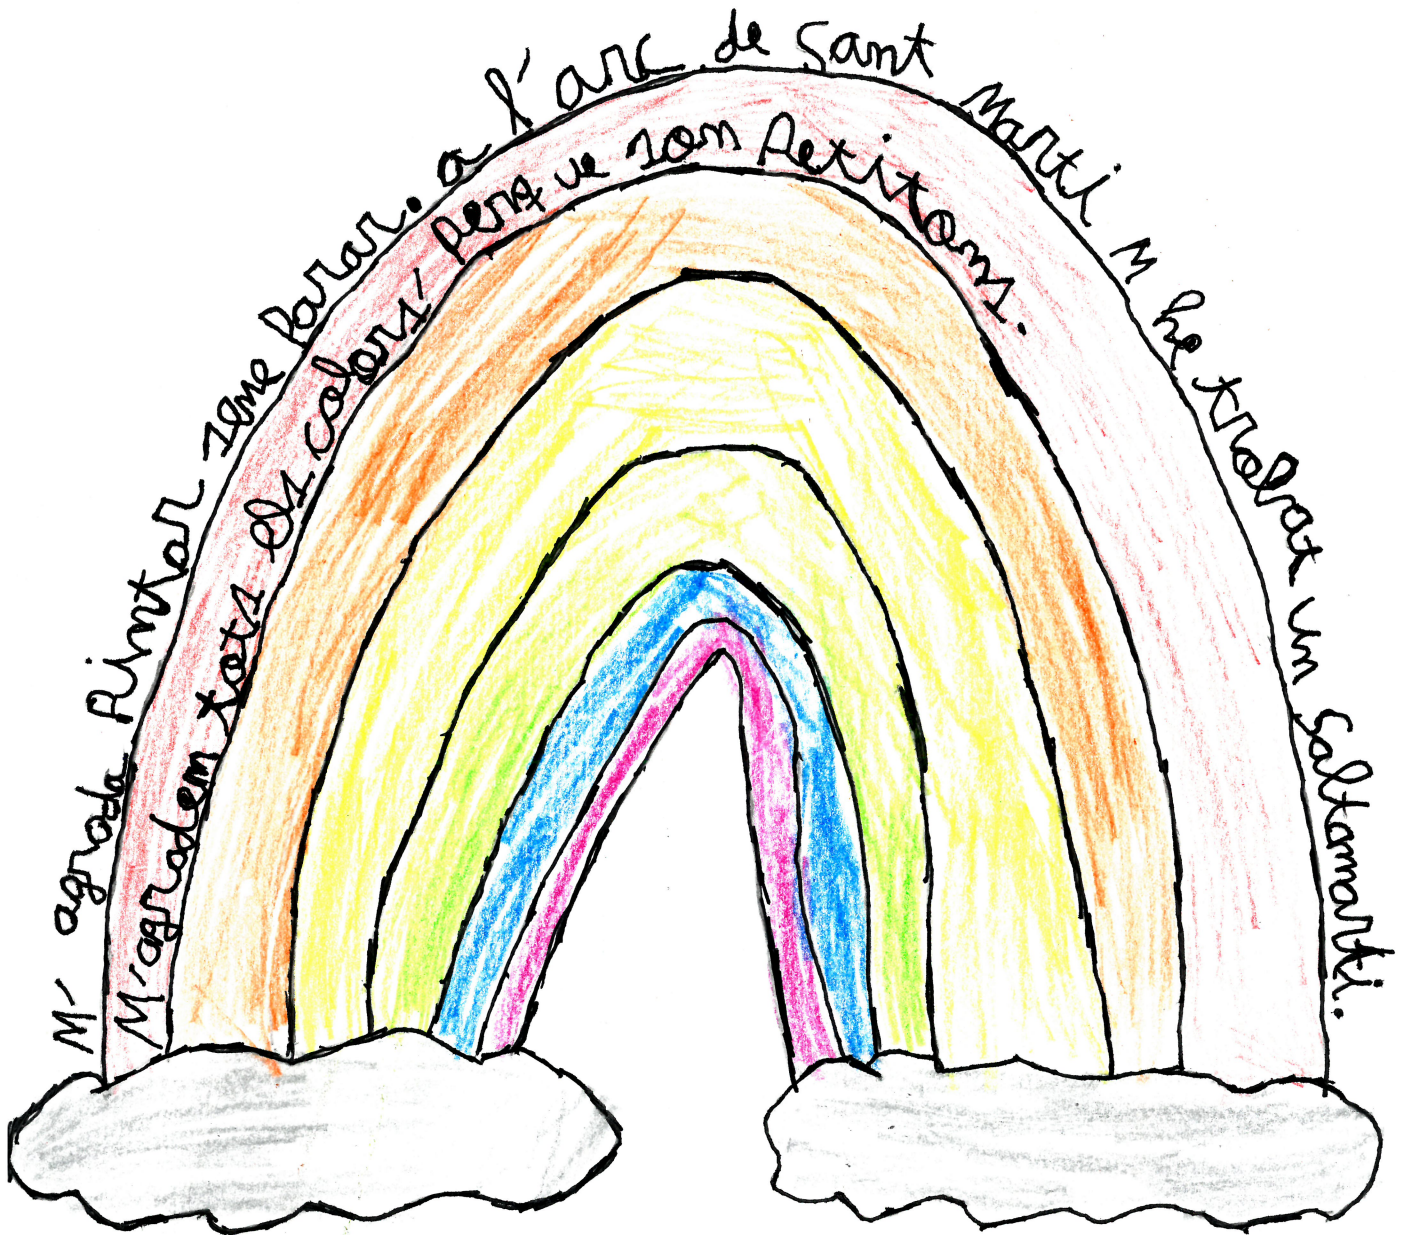 M' agrada Pintar sense parar. a l'arc de Sant Marti M he trobat un Saltamarti.
M'agraden tots els colors' perque son Petitons.